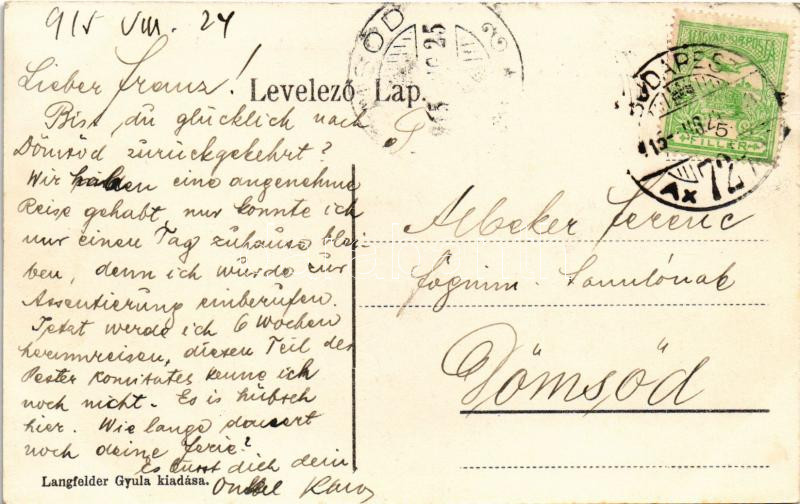 915 VIII. 24
Lieber Franz!
Bist du glücklich nach
Dömsöd zurückgekehrt?
Wir haben eine angenehme
Reise gehabt, nur konnte ich
nur einen Tag zuhause blei-
ben, denn ich wurde zur
Assentierung einberufen.
Jetzt werde ich 6 Wochen
herumreisen, diesen Teil des
Pester Komitates kenne ich
noch nicht. Es is hübsch
hier. Wie lange dauert
noch deine ferie?
Es küsst dich dein
Onkel Karo
Langfelder Gyula kiadása.
Levelező Lap.
Ferenc
főgimn. tanulónak
Dömsöd
MAGYAR KIR. POSTA
FILLÉR
BUDAPEST
72